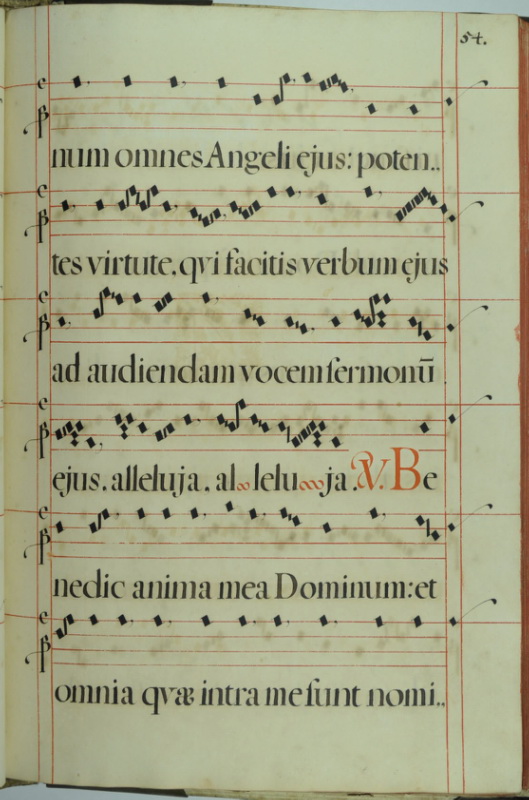 54.
num omnes Angeli ejus: poten..
tes virtute. qvi facitis verbum ejus
ad audiendam vocem sermonū
ejus. alleluja. al lelu ja. V. Be
nedic anima mea Dominum: et
omnia qvæ intra me sunt nomi..